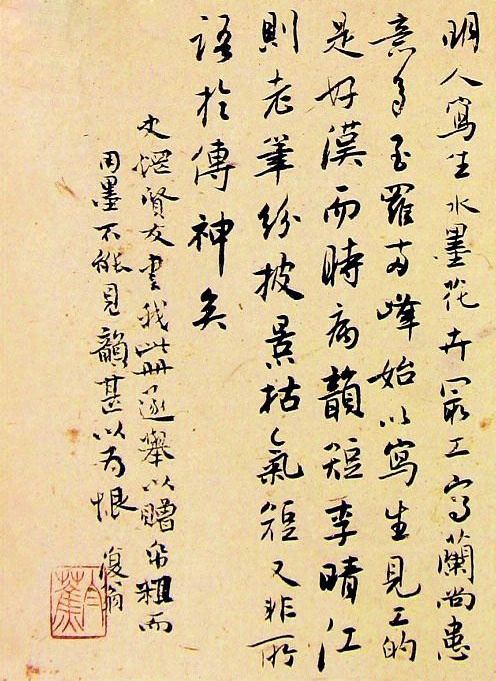 明人寫生水墨花卉冣工寫蘭尚患
意多至羅兩峰始以寫生見工的
是好漢而時病韻短李晴江
則老筆紛披景枯氣短又非所
語於傳神矣
史賢友我此冊遂舉以贈帋粗而
用墨不能見韻甚以為恨 復翁